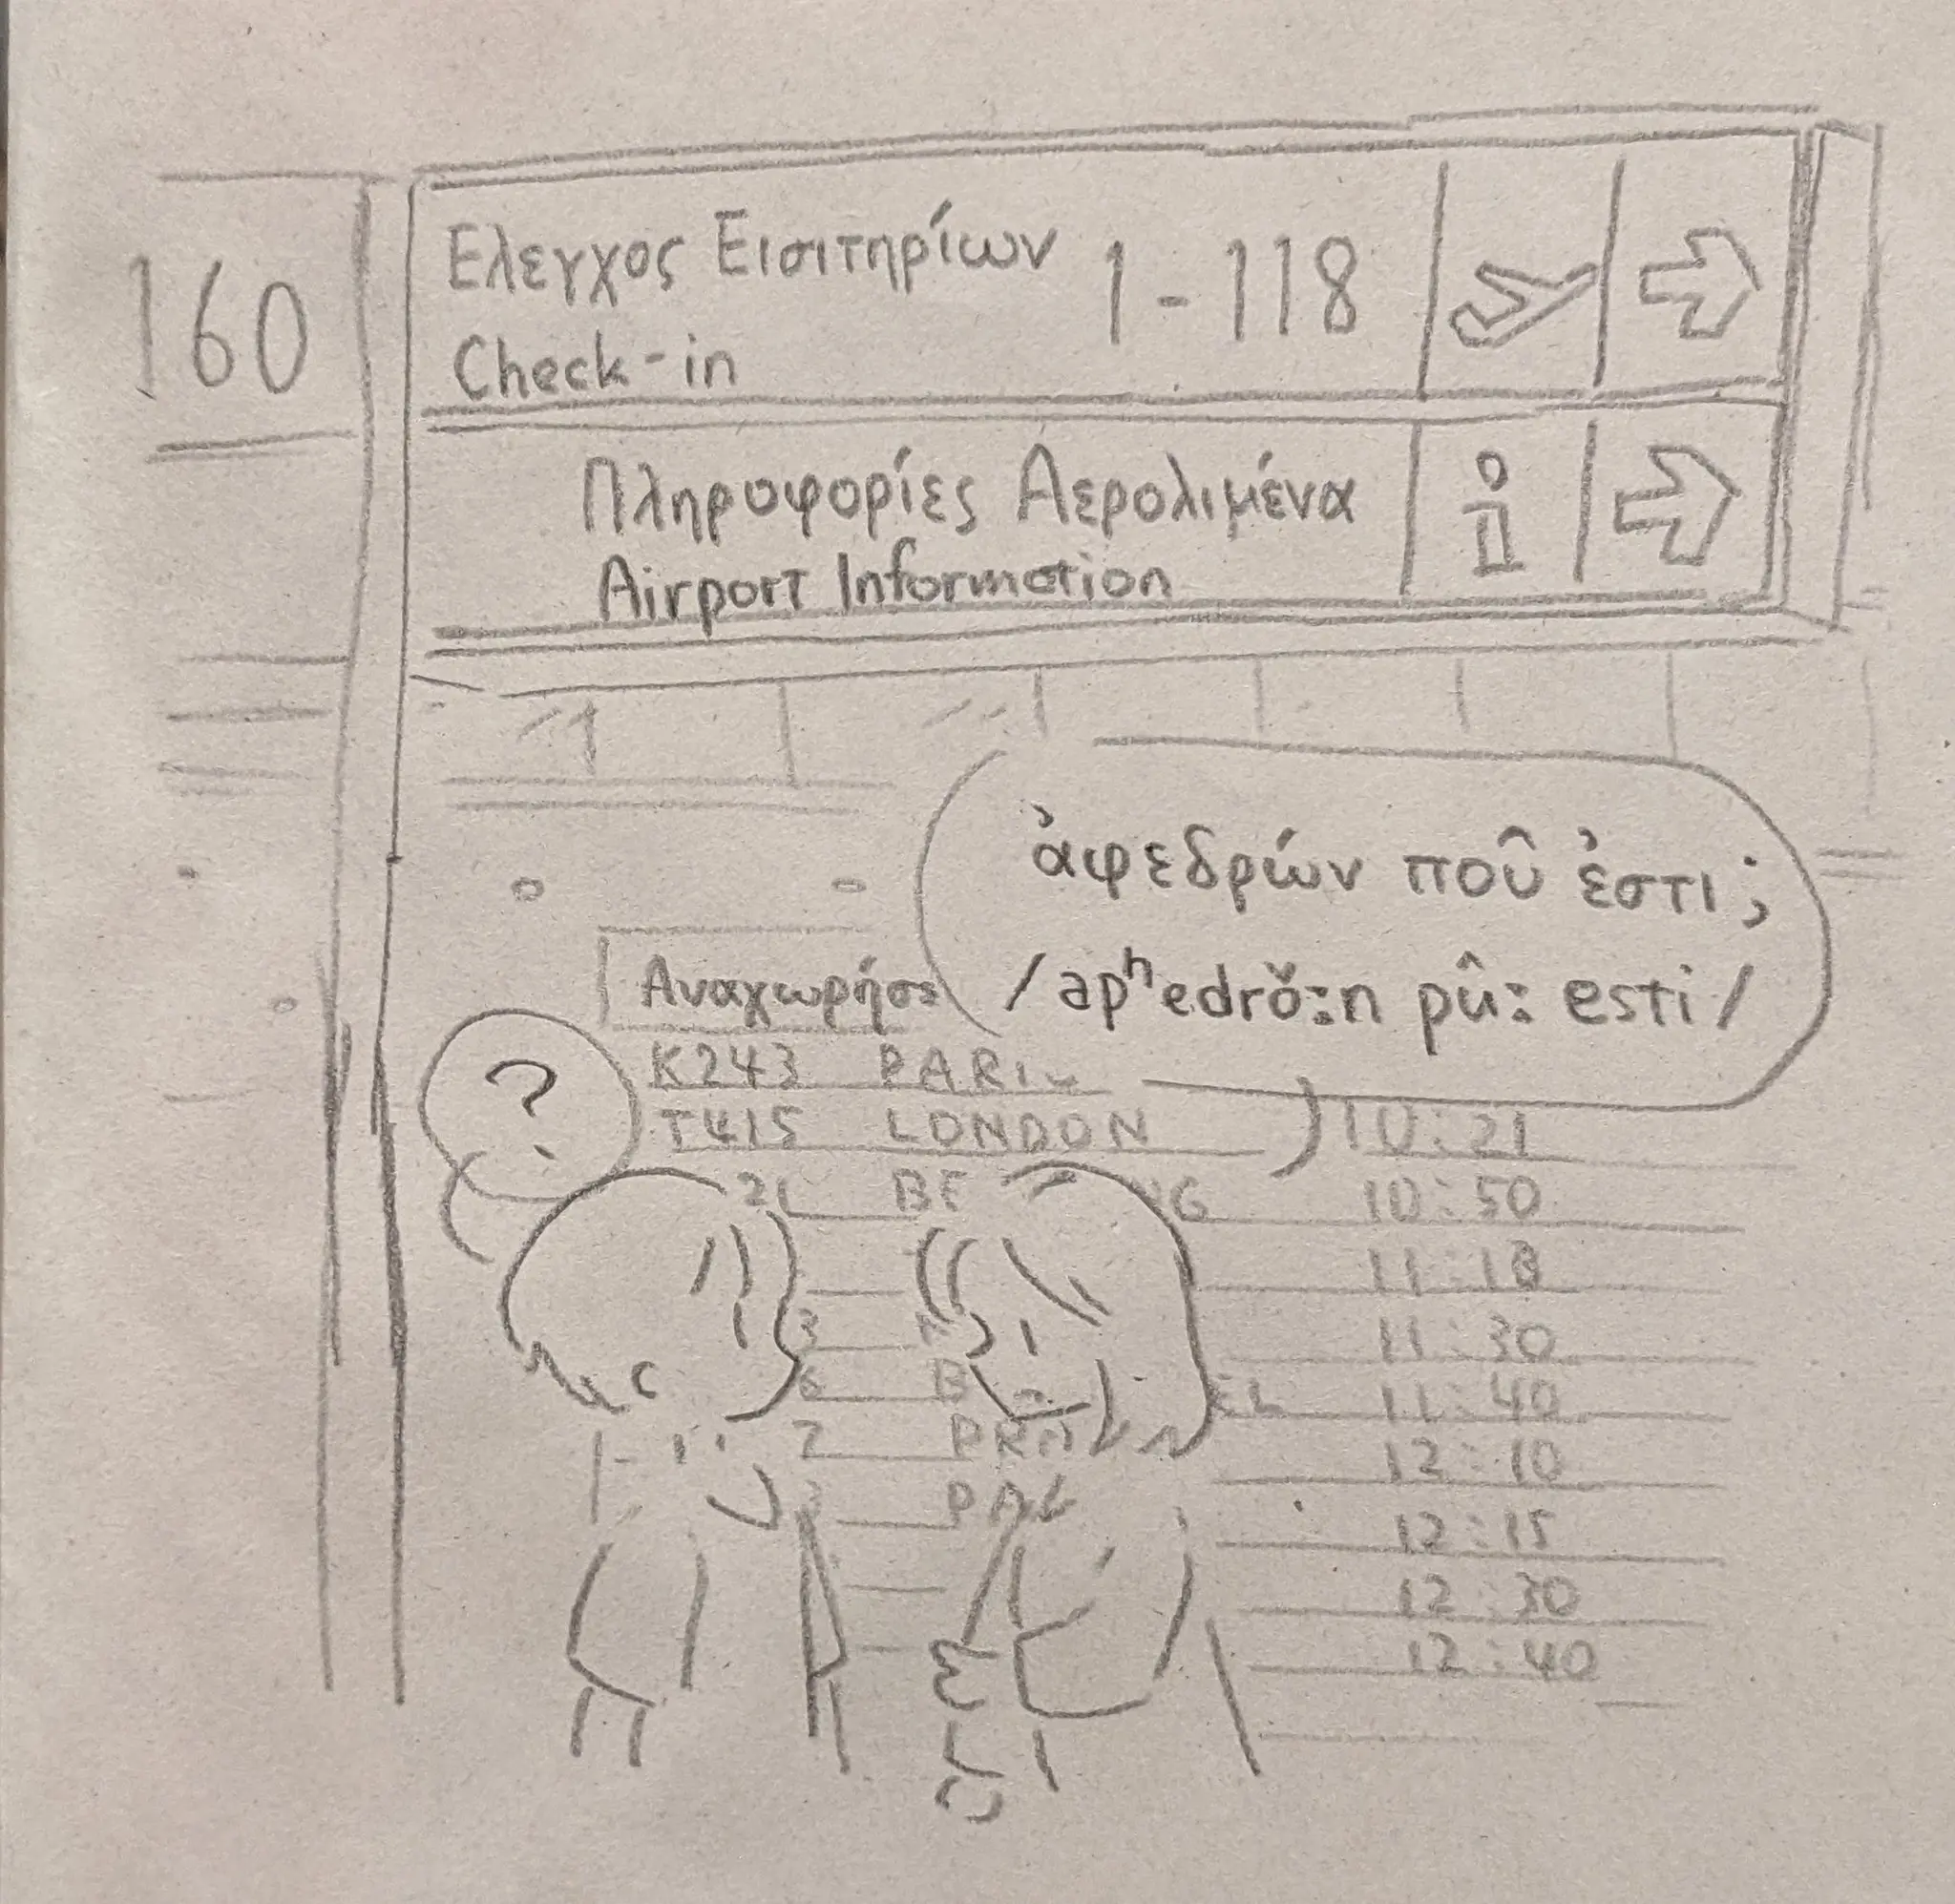 160
Ελεγχος Εισιτηρίων 1-118
Check-in
Πληροφορίες Αερολιμένα
Airport Information
ἀφεδρών ποῦ ἐστι;
/apʰedrǒːn pûː esti/
Αναχωρήσε
?
K243
T415 LONDON 10:21
10:50
11:18
11:30
11:40
12:10
12:15
12:30
12:40